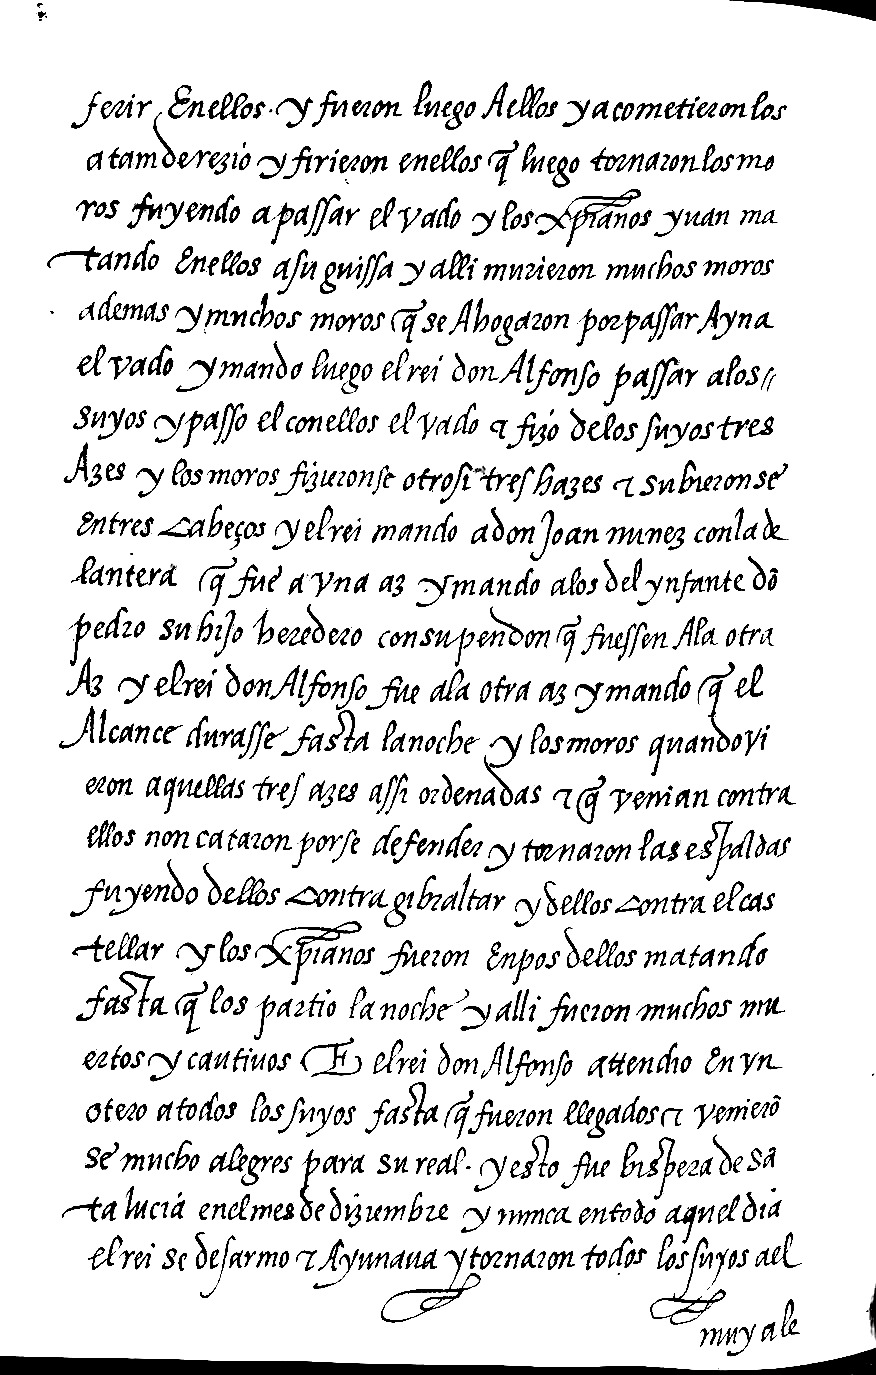 ferir Enellos. y fueron luego Aellos y acometieron los
a tam de rezio y firieron enellos q̃ luego tornaron los mo
ros fuyendo a passar el vado y los xp̃ianos yuan ma
tando Enellos a su guissa y alli murieron muchos moros
ademas y muchos moros q̃ se Ahogaron por passar Ayna
el vado y mando luego el rei don Alfonso passar a los //
suyos y passo el con ellos el vado & fizo de los suyos tres
Azes y los moros fizieronse otrosi tres hazes & subieronse
Entres Cabeços y el rei mando a don Joan nunez con la de
lantera q̃ fue a vna az y mando alos del ynfante dõ
pedro su hijo heredero con su pendon q̃ fuessen Ala otra
Az y el rei don Alfonso fue ala otra az y mando q̃ el
Alcance durasse fasta la noche y los moros quando vi
eron aquellas tres azes assi ordenadas & q̃ venian contra
ellos non cataron por se defender y tornaron las espaldas
fuyendo dellos Contra gibraltar y dellos Contra el cas
tellar y los xp̃ianos fueron Enpos dellos matando
fasta q̃ los partio la noche y alli fueron muchos mu
ertos y cautiuos E el rei don Alfonso attendio En vn
otero a todos los suyos fasta q̃ fueron llegados & venierõ
se mucho alegres para su real. y esto fue bispera de Sã
ta lucia en el mes de diziembre y nunca en todo aquel dia
el rei se desarmo & Ayunaua y tornaron todos los suyos a el
muy ale